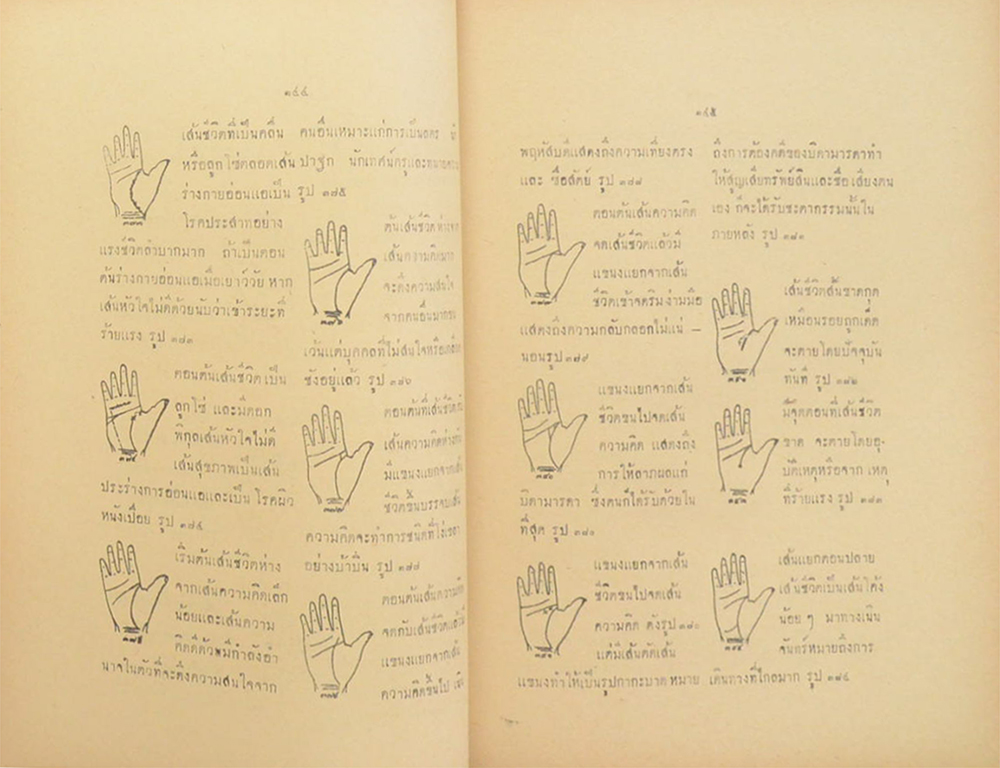 ๑๔๔
เส้นชีวิตที่เป็นคลื่น
หรือลูกโซ่ตลอดเส้น
ร่างกายอ่อนแอเป็น
โรคประสาทอย่าง
แรงชีวิตลำบากมาก ถ้าเป็นตอน
ต้นร่างกายอ่อนแอเมื่อเยาว์วัย หาก
เส้นหัวใจไม่ดีด้วยนับว่าเข้าระยะที่
ร้ายแรง รูป ๓๗๓
ตอนต้นเส้นชีวิต เป็น
ลูกโซ่ และมีดอก
พิกุลเส้นหัวใจไม่ดี
เส้นสุขภาพเป็นเส้น
ประร่างการอ่อนแอและเป็น โรคผิว
หนังเปื่อย รูป ๓๗๔
เริ่มต้นเส้นชีวิตห่าง
จากเส้นความคิดเล็ก
น้อยและเส้นความ
คิดดีด้วมีกำลังอำ
นาจในตัวที่จะดึงความสนใจจาก
คนอื่นเหมาะแก่การเป็น
ปาฐก นักเทศน์ครูและ
รูป ๓๗๕
ต้นเส้นชีวิต
เส้นความคิดมาก
จะดึงความสนใจ
จากคนอื่นมา
เว้นแต่บุคคลที่ไม่สนใจหรือ
ชังอยู่แล้ว รูป ๓๗๖
ตอนต้นที่เส้นชีวิต
เส้นความคิดห่าง
มีแขนงแยกจากเส้น
ชีวิตขึ้นบรรจบ
ความคิดจะทำการชนิดที่โง่เขลา
อย่างบ้าบิ่น รูป ๓๗๗
ตอนต้นเส้นความคิด
จดกับเส้นชีวิต
แขนงแยกจากเส้น
ความคิดขึ้นไป
๑๔๕
พฤหัสบดีแสดงถึงความเที่ยงตรง
และ ซื่อสัตย์ รูป ๓๗๘
ตอนต้นเส้นความคิด
จดเส้นชีวิตแล้วมี
แขนงแยกจากเส้น
ชีวิตเข้าจดริมง่ามมือ
แสดงถึงความกลับกลอกไม่แน่ –
นอนรูป ๓๗๙
แขนงแยกจากเส้น
ชีวิตขนไปจดเส้น
ความคิด แสดงถึง
การให้ลาภผลแก่
บิดามารดา ซึ่งตนก็ได้รับด้วยใน
ที่สุด รูป ๓๘๐
แขนงแยกจากเส้น
ชีวิตขนไปจดเส้น
ความคิด ดังรูป ๓๘๐
แต่มีเส้นตัดเส้น
แขนงทำให้เป็นรูปกากะบาด หมาย
ถึงการต้องคดีของบิดามารดาทำ
ให้สูญเสียทรัพย์สินและชื่อเสียงตน
เอง ก็จะได้รับชะตากรรมนั้นใน
ภายหลัง รูป ๓๘๑
เส้นชีวิตสั้นขาดกุด
เหมือนรอยถูกเด็ด
จะตายโดยปัจจุบัน
ทันที รูป ๓๘๒
มีจุดตอนที่เส้นชีวิต
ขาด จะตายโดยอุ-
บัติเหตุหรือจาก เหตุ
ที่ร้ายแรง รูป ๓๘๓
เส้นแยกตอนปลาย
เส้นชีวิตเป็นเส้นโค้ง
น้อย ๆ มาทางเนิน
จันทร์หมายถึงการ
เดินทางที่ไกลมาก รูป ๓๘๔